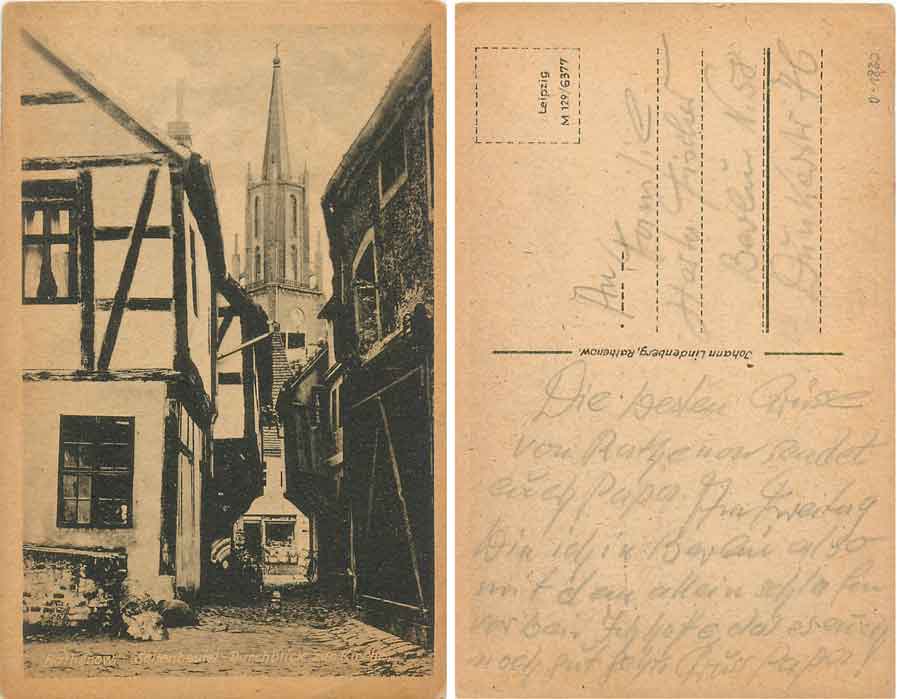 Rathenow - Seitenbeutel - Durchblick zur Kirche
Leipzig
M 129/6377
An Familie
Berlin N. 58
Dunkerstr 76
0-1883
Johann Lindenberg, Rathenow.
Die besten Grüse
von Rathenow sendet
euch Papa Am Freitag
bin ich in Berlin also
mit dem allein schlafen
vorbei. Ich hoffe, das es euch
noch gut geht Gruss Papa